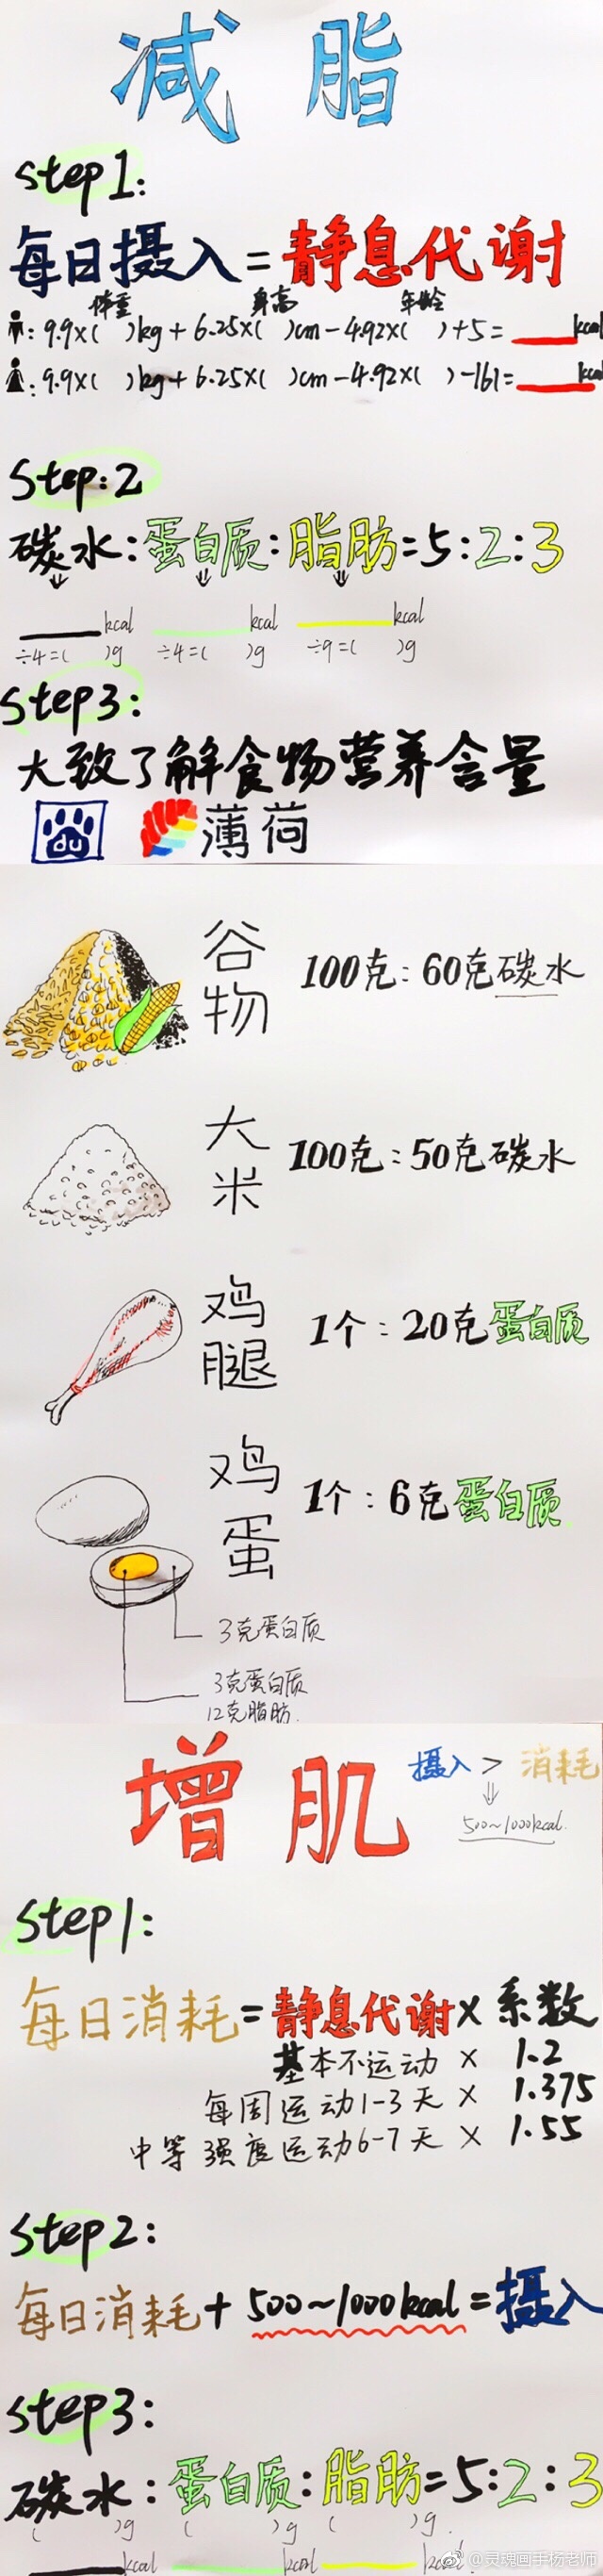 减 脂
step1:
每日摄入=静息代谢
体重 身高 年龄
:9.9×( )kg+6.25×( )cm-4.92×( )+5=____kcal
:9.9×( )kg+6.25×( )cm-4.92×( )-161=____kcal
Step:2
碳水:蛋白质:脂肪=5:2:3
____kcal ____kcal ____kcal
÷4=( )g ÷4=( )g ÷9=( )g
step3:
大致了解食物营养含量
du 薄荷
谷物 100克:60克碳水
大米 100克:50克碳水
鸡腿 1个:20克蛋白质
鸡蛋 1个:6克蛋白质
3克蛋白质
3克蛋白质
12克脂肪.
增 肌 摄入>消耗
500~1000kcal.
step1:
每日消耗=静息代谢×系数
基本不运动 × 1.2
每周运动1-3天 × 1.375
中等强度运动6-7天 × 1.55
step2:
每日消耗+500~1000kcal=摄入
step3:
碳水:蛋白质:脂肪=5:2:3
( )g ( )g ( )g.
____kcal ____kcal ____kcal.
@灵魂画手杨老师